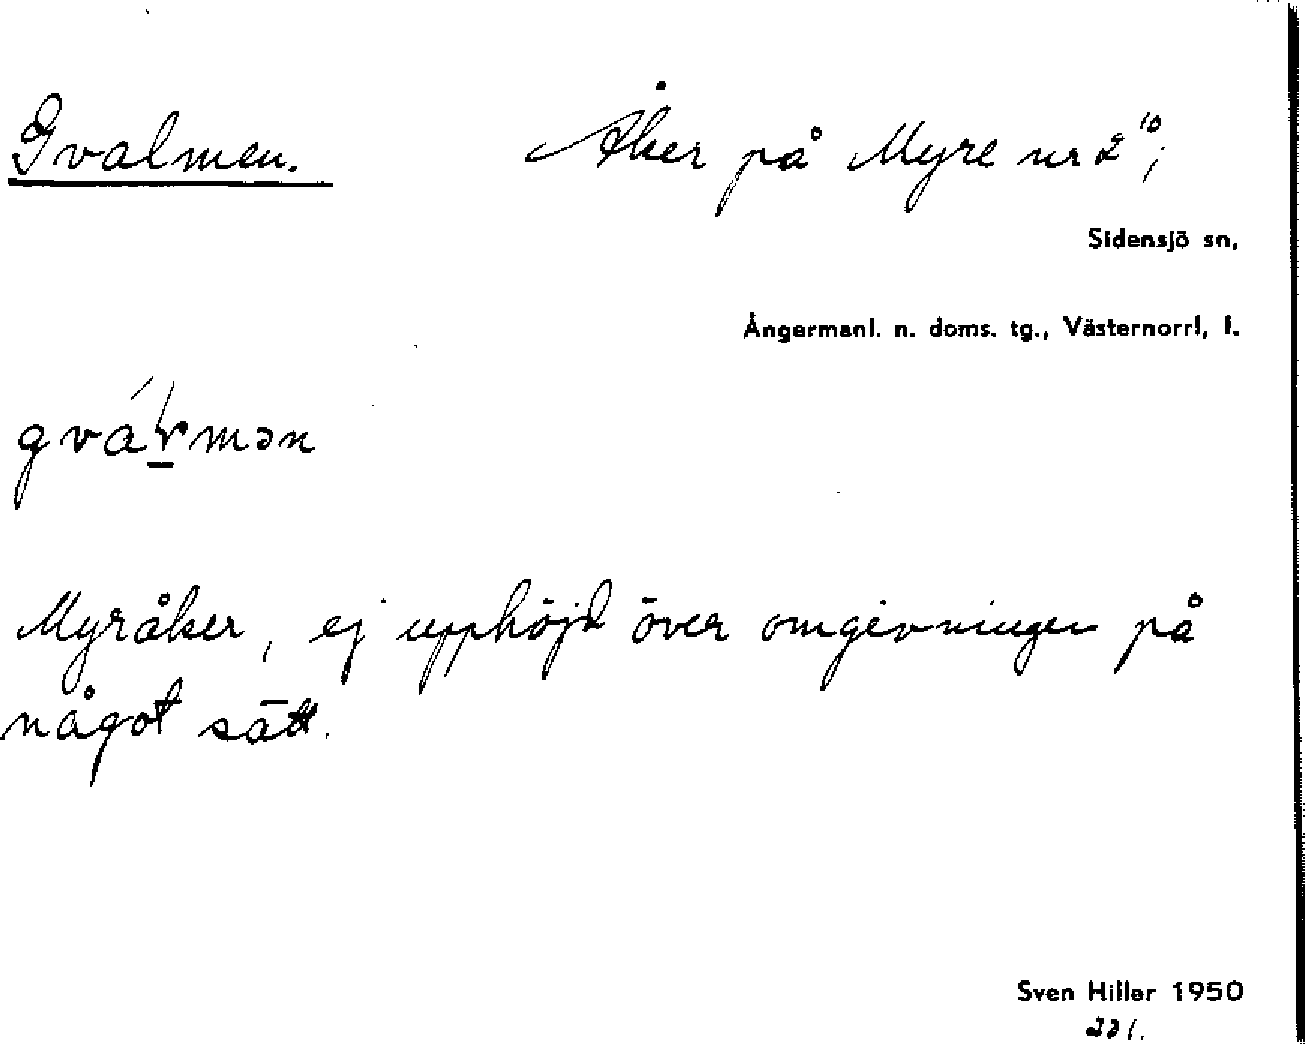 Gvalmen. Åker på Myre nr 2¹⁰;
Sidensjö sn,
Ångermanl. n. doms. tg., Västernorrl, l.
Myråker, ej upphöjd över omgivningen på
något sätt.
Sven Hiller 1950
221.